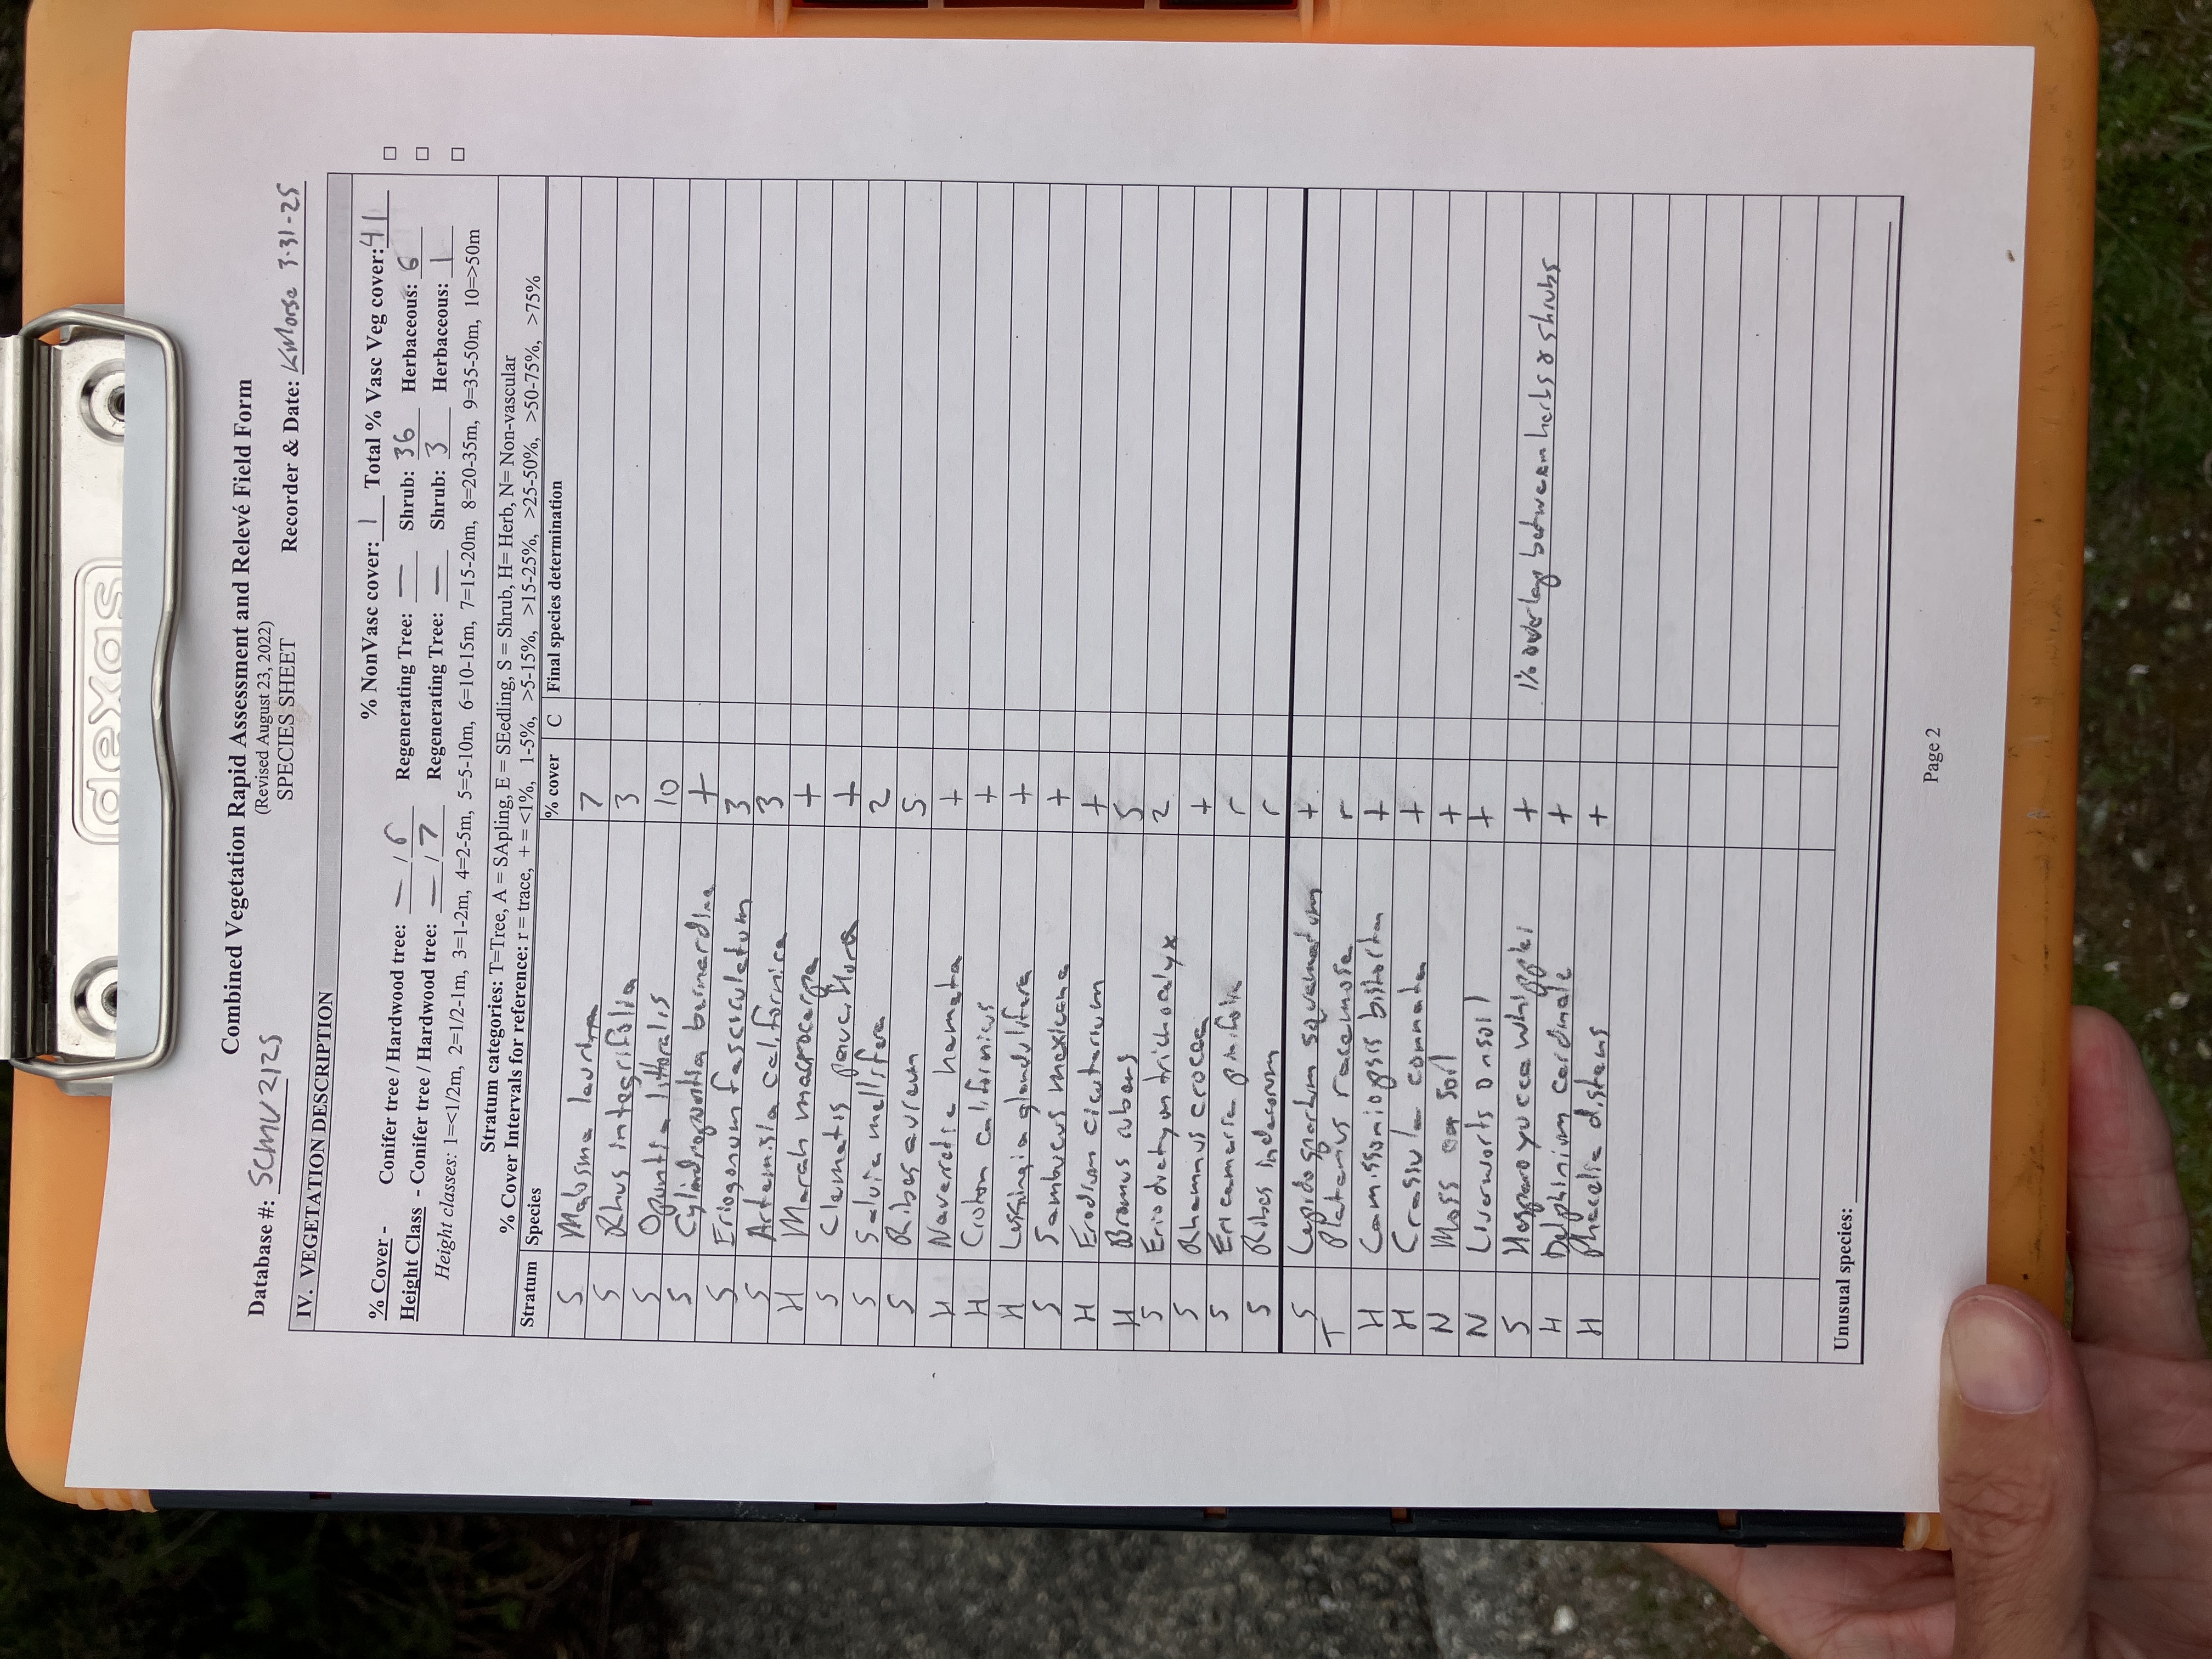 dexas
Combined Vegetation Rapid Assessment and Relevé Field Form
(Revised August 23, 2022)
Database #: SCMV2125 SPECIES SHEET Recorder & Date: KMorse 3-31-25
IV. VEGETATION DESCRIPTION
% NonVasc cover: 1 Total % Vasc Veg cover: 41 □
% Cover - Conifer tree / Hardwood tree: — / 6 Regenerating Tree: — Shrub: 36 Herbaceous: 6 □
Height Class - Conifer tree / Hardwood tree: — / 7 Regenerating Tree: — Shrub: 3 Herbaceous: 1 □
Height classes: 1=<1/2m, 2=1/2-1m, 3=1-2m, 4=2-5m, 5=5-10m, 6=10-15m, 7=15-20m, 8=20-35m, 9=35-50m, 10=>50m
Stratum categories: T=Tree, A = SApling, E = SEedling, S = Shrub, H= Herb, N= Non-vascular
% Cover Intervals for reference: r = trace, + = <1%, 1-5%, >5-15%, >15-25%, >25-50%, >50-75%, >75%
Stratum Species % cover C Final species determination
S Malosma laurina 7
S Rhus integrifolia 3
S Opuntia littoralis 10
S Cylindropuntia +
S Eriogonum fasciculatum 3
S Artemisia californica 3
H Marah macrocarpa +
S Clematis pauciflora +
S Salvia mellifera 2
S Ribes aureum 5
H Navarretia hamata +
H Croton californicus +
H Lessingia glandulifera +
S Sambucus mexicana +
H Erodium cicutarium +
H Bromus rubens 5
S Eriodictyon trichocalyx 2
S Rhamnus crocea +
S Ericameria pinifolia r
S Ribes indecorum r
S Lepidospartum squamatum +
T Platanus racemosa r
H Camissoniopsis bistorta +
H Crassula connata +
N Moss on soil +
N Liverworts on soil +
S Hesperoyucca whipplei + 1% overlap between herbs & shrubs
H Delphinium cardinale +
H Phacelia distans +
Unusual species:
Page 2